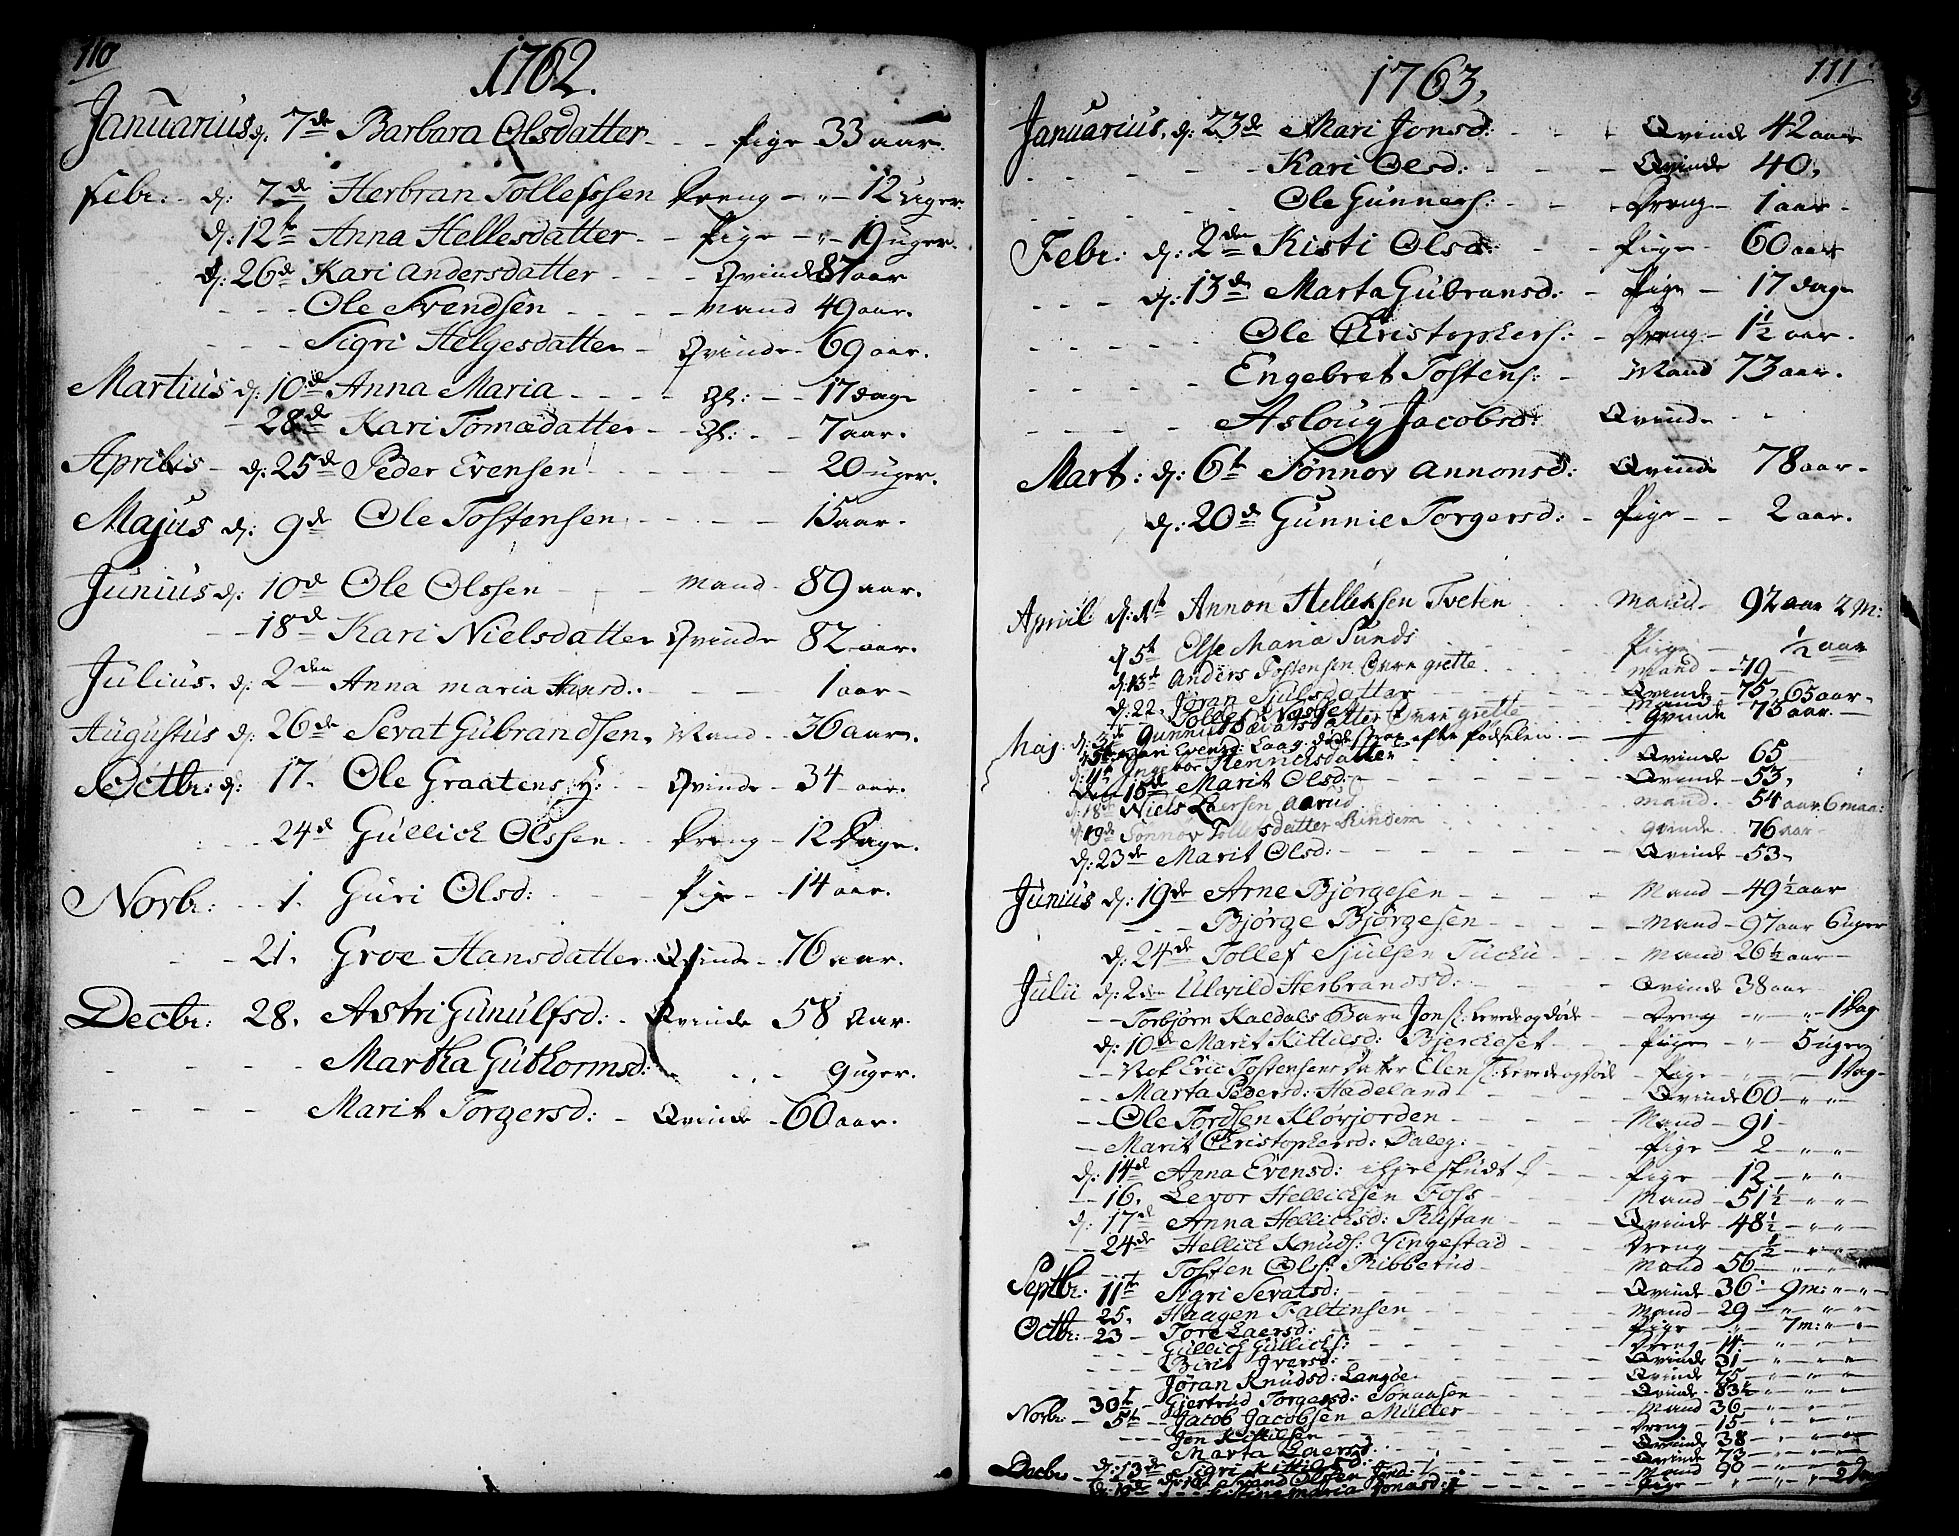 110
1762.
Januarius d: 7de Barbara Olsdatter - - - Pige - 33 aar.
Febr: - d: 7de Herbran Tollefssen Dreng - " - 12 Uger.
d: 12te Anna Hellesdatter - - Pige - " - 19 uger.
d: 26de Kari Andersdatter - - - Qvinde 87 aar
- - - Ole Svendsen - - - - Mand 49 aar.
- - - Sigri Helgesdatter - Qvinde - 69 aar.
Martius d: 10de Anna Maria - - - - - - 17 dage
- 28de Kari Tomædatter - - - - 7 aar.
Aprilis - d: 25de Peder Evensen - - - - - 20 uger.
Majus d: 9de Ole Tostensen - - - - - 15 aar.
Junius d: 10d Ole Olssen - - - Mand - 89 aar.
- - 18d Kari Nielsdatter Qvinde 82 aar.
Julius. d: 2den Anna Maria Hansd: - - - - 1 aar -
Augustus d: 26de Sevat Gubrandsen. Mand - 36 aar.
Octbr: d: 17. Ole Graatens - - Qvinde - 34 - aar.
- - - 24d Gullich Olssen - - Dreng - 12 Dage.
Novbr: - - 1. Guri Olsd: - - - Pige - 14 aar.
- - 21. Groe Hansdatter. Qvinde - 76 aar.
Decbr: 28. Astri Gunulfsd: - Qvinde 58 Aar.
- - - - Martha Guthormsd: - - - 9 uger.
- - - - Marit Torgersd: - Qvinde - 60 aar.
111
1763,
Januarius. d: 23de Mari Jonsd: - - - Qvinde 42 aar
- - - - Kari Olsd: - - - - Qvinde 40,
- - - - Ole Gunners: - - - Dreng - 1 aar -
Febr: d: 2den Kisti Olsd: - - Pige - 60 aar
- - - d: 13de Marta Gubransd: - Pige - 17 dage
- - - - Ole Christophers: - Dreng - 1½ aar.
- - - - Engebret Tostens: - Mand 73 aar.
- - - - Asloug Jacobsd: Qvinde - -
Mart: d: 6t Sønnov Annonsd: Qvinde 78 aar -
d: 20de Gunnie Torgersd: - Pige - - 2 aar.
April: d: 1t Annon Hellecksen Tveten - - Mand - 92 aar 2 M:
d 5t Else Maria Sunds - - - Pige - ½ aar
d: 13t Anders Tostensen Overgrette - - Mand - 79 -
d: 22. Jøran Sjulsdatter - - - Qvinde - 75 -
Mand 65 aar -
Overgrette - Qvinde 73 aar. -
Maj. - efter fødselen. -
Ingebor Henrichsdatter - - - Qvinde 65
Den 15de Marit Olsd: - - - Qvinde - 53,
d: 18de Niels Laersen Aarud - - - Mand. - 54 aar 6 maa:
d: 19de Sønnov Tollefsdatter Rindem - - - Qvinde - 76 aar -
d: 23de Marit Olsd: - - - - Qvinde - 53 -
Junius d: 19de Arne Bjørgesen - - - - Mand - 49½ aar
- - - Bjørge Bjørgesen - - - - Mand - 97 aar 6 uger
d: 24de Tollef Sjulsen Tuchu - - - Mand 26½ aar -
Julii d: 2den Ulvild Herbransd: - - - - Qvinde 38 aar -
- - Torbjørn Kaldals Barn Jon levede og døde - Dreng - " - " 1 Dag
d: 10de Marit Kittilsd: Bjercheset - - Pige - " - 5 uger
- - Nok Eric Tostensens Datter Elen levede og døde - Pige - - 1 Dag -
- - Marta Pedersd: Hadeland - - - Qvinde 60 - " - " -
- - Ole Tordsen Kløvjorden - - - Mand - 91 -
- Marit Christophersd: - - - Pige - 2 - " - " -
d: 14d Anna Evensd: - - Pige - 12 - " - " -
- - 16. Levor Hellichsen Foss - - - Mand - 51½ - " - " -
d: 17d Anna Hellichsd: Rustan - - Qvinde - 48½ - " - " -
- - 24de Hellich Knuds: Vingestad - - Dreng - ½ - " - " -
- - Tosten Ols: Ribberud - - - Mand 56 - " - " -
Septbr: 11t Sigri Sevatsd: - - - - Qvinde - 36 - 9 m: " - " -
25. Haagen Faltinsen - - - - Mand - 29 - " - " - " -
Octbr: 23 - Tore Laersd: - - - - Pige - " - 7 m: " - " -
Gullich Gullichs: - - - Dreng - 14 - " - " -
- - - Birit Iversd: - - - - Qvinde 31 - " - " -
- - - Jøran Knudsd: Langøe - - - Qvinde 75 - " - " -
30t - Giertrud Torgersd: - - - Qvinde - 83½ - " - " -
Novbr: - 5t - - Jacob Jacobsen Müller - - - Mand - 36 - " - " -
- - - Jon Kittilsen - - - Dreng - 15 - " - " -
- - - Marta Laersd: - - - Qvinde 38 - " - " -
Decbr: - d: 13de Sigri Kittilsd: - - - Qvinde - 73 - " - " -
Olssen - - - Mand 90 - " - " -
Maria Jonasd: - - - Pige - " - " - 2 Dage